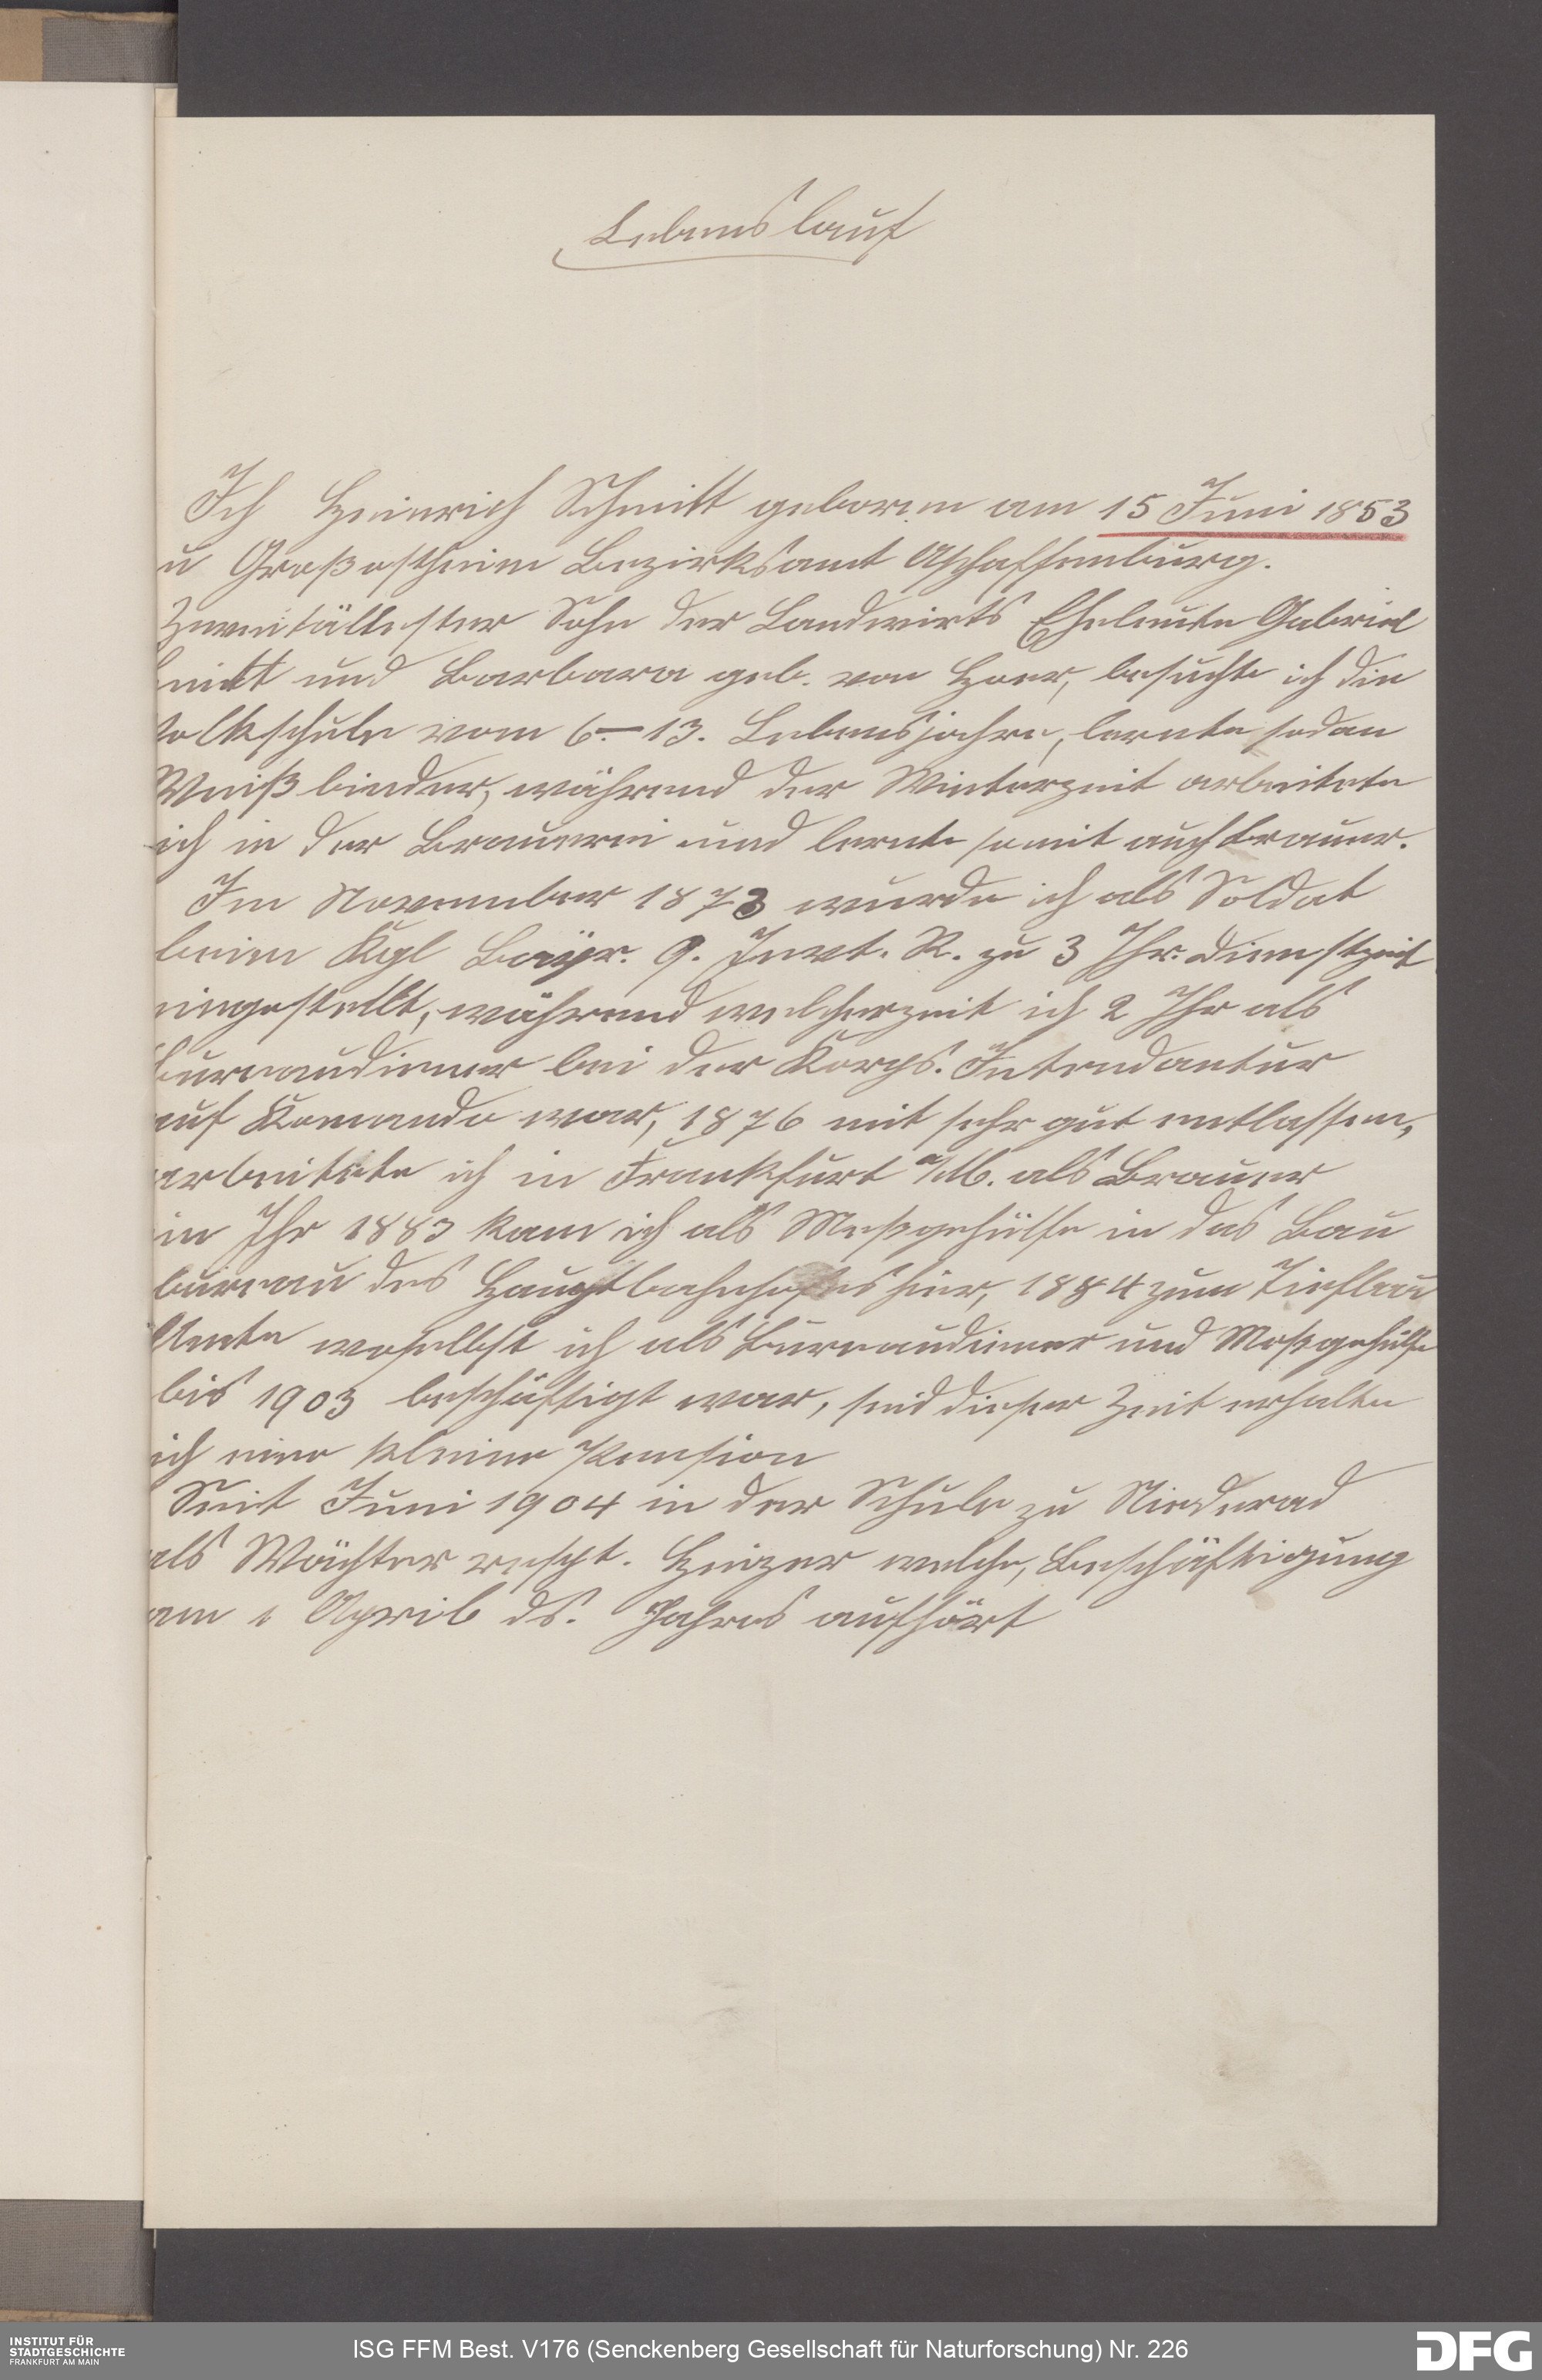 Lebenslauf
Ich Heinrich Schmitt geboren am 15 Juni 1853
u Großostheim Bezirksamt Aschaffenburg.
Zweitältester Sohn der Landwirts Eheleute Gabriel
mitt und Barbara geb. von Hoer, besuchte ich die
Volkschule vom 6.–13. Lebensjahre, lernte sodan
Weißbinder, während der Winterzeit arbeitete
ich in der Brauerei und lernte somit auch Brauer.
Im November 1873 wurde ich als Soldat
beim Kgl Bayr. 9. Invt. R. zu 3 Jhr. Dienstzeit
eingestellt, während welcherzeit ich 2 Jhr als
Bureaudiener bei der Korps. Intendantur
auf Komando war, 1876 mit sehr gut entlassen,
arbeitete ich in Frankfurt a/M. als Brauer
im Jhr 1883 kam ich als Meßgehülfe in das Bau
büreau des Hauptbahnhofes hier, 1884 zum Tiefbau
Amte woselbst ich als Bureaudiener und Meßgehülfe
bis 1903 beschäftigt war, seid dieser Zeit erhalte
ich eine kleine Pension
Seit Juni 1904 in der Schule zu Niederad
als Wächter respt. Heizer welche, Beschäftigung
am 1 April ds. Jahres aufhört
INSTITUT FÜR
STADTGESCHICHTE
FRANKFURT AM MAIN
ISG FFM Best. V176 (Senckenberg Gesellschaft für Naturforschung) Nr. 226
DFG